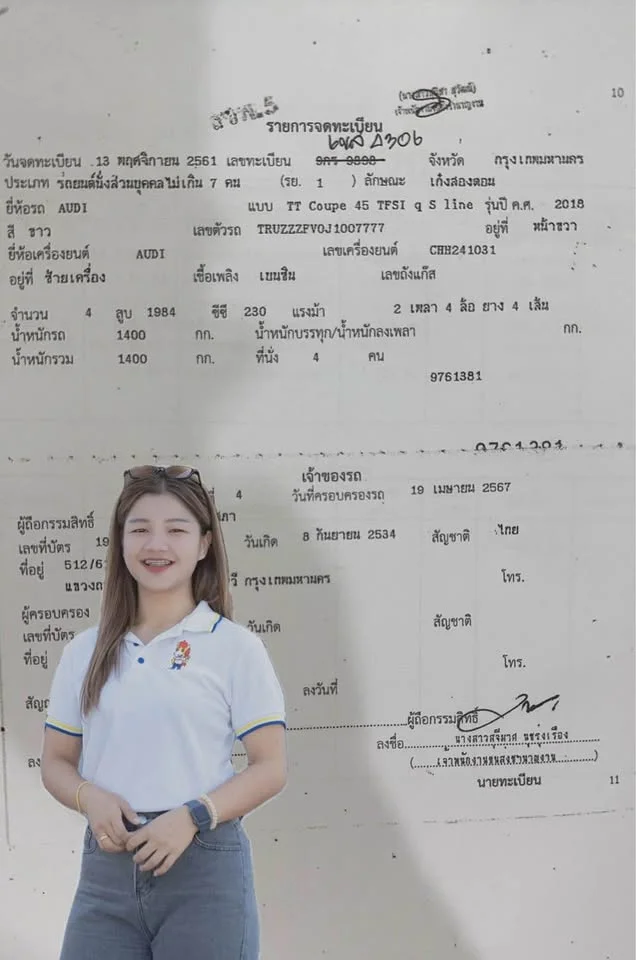 10
รายการจดทะเบียน
วันจดทะเบียน 13 พฤศจิกายน 2561 เลขทะเบียน จังหวัด กรุงเทพมหานคร
ประเภท รถยนต์นั่งส่วนบุคคลไม่เกิน 7 คน (รย. 1 ) ลักษณะ เก๋งสองตอน
ยี่ห้อรถ AUDI แบบ TT Coupe 45 TFSI q S line รุ่นปี ค.ศ. 2018
สี ขาว เลขตัวรถ TRUZZZFV0J1007777 อยู่ที่ หน้าขวา
ยี่ห้อเครื่องยนต์ AUDI เลขเครื่องยนต์ CHH241031
อยู่ที่ ซ้ายเครื่อง เชื้อเพลิง เบนซิน เลขถังแก๊ส
จำนวน 4 สูบ 1984 ซีซี 230 แรงม้า 2 เพลา 4 ล้อ ยาง 4 เส้น
น้ำหนักรถ 1400 กก. น้ำหนักบรรทุก/น้ำหนักลงเพลา กก.
น้ำหนักรวม 1400 กก. ที่นั่ง 4 คน
9761381
เจ้าของรถ
ที่ 4 วันที่ครอบครองรถ 19 เมษายน 2567
ผู้ถือกรรมสิทธิ์
เลขที่บัตร 19 วันเกิด 8 กันยายน 2534 สัญชาติ ไทย
ที่อยู่ 512/6 กรุงเทพมหานคร โทร.
ผู้ครอบครอง
เลขที่บัตร วันเกิด สัญชาติ
ที่อยู่ โทร.
ลงวันที่
ผู้ถือกรรมสิทธิ์
ลงชื่อ
นายทะเบียน
11